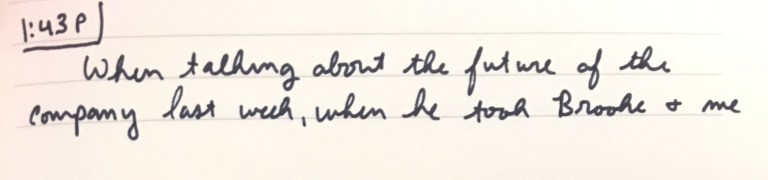 1:43 P
When talking about the future of the
company last week, when he took Brooke & me